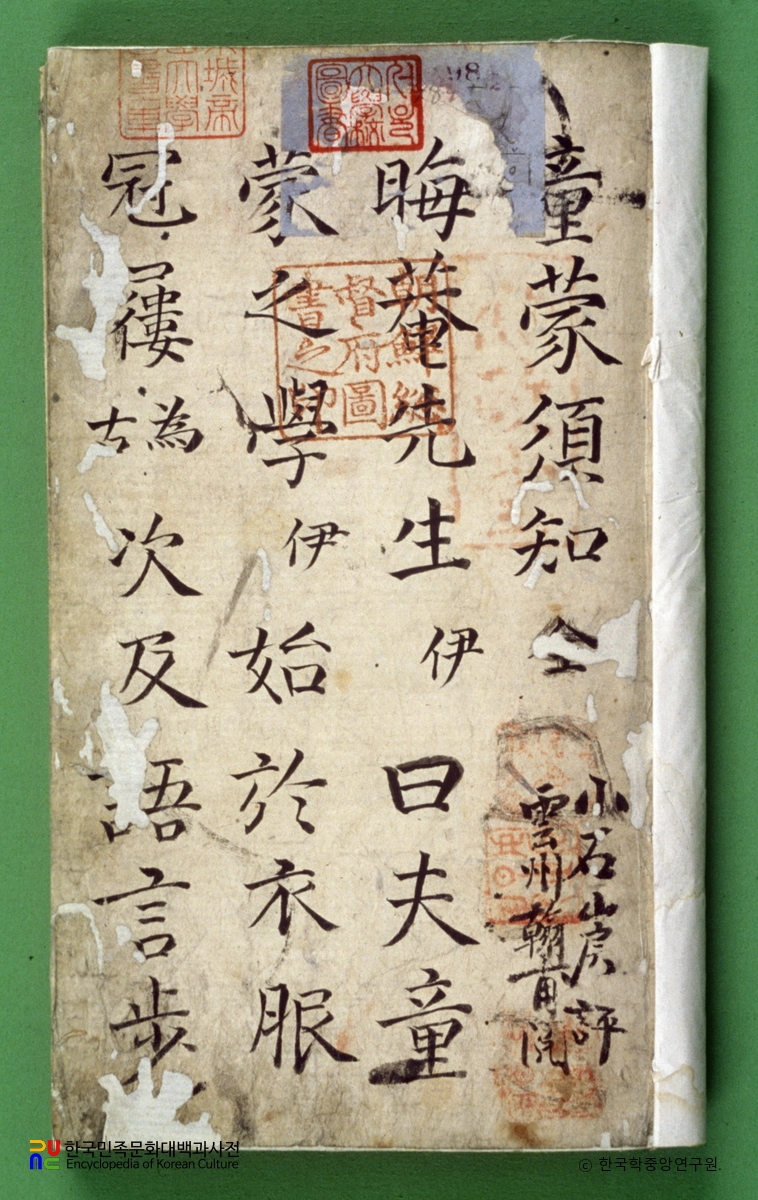 童蒙須知 全
小石山房評
雲州翰
晦菴先生 伊 曰夫童
蒙之學 伊 始於衣服
冠屨 為古 次及語言步
朝鮮總督府圖書之印
大學校圖書
한국민족문화대백과사전
Encyclopedia of Korean Culture
© 한국학중앙연구원.